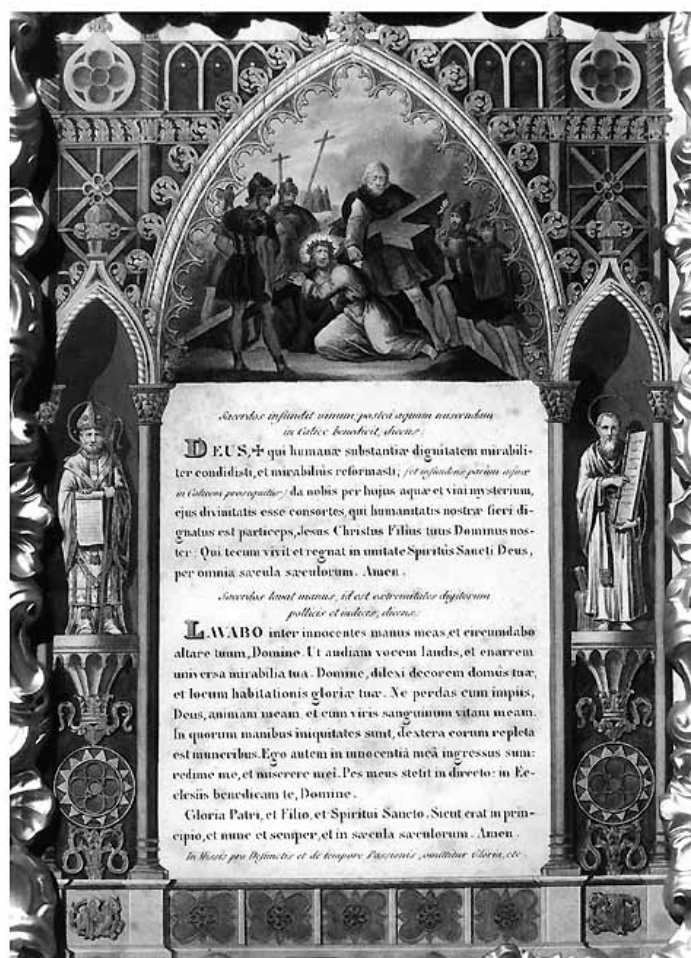 Sacerdos infundit vinum, posteà aquam miscendam
in Calice benedicit, dicens:
DEUS, ✠ qui humanæ substantiæ dignitatem mirabili-
ter condidisti, et mirabiliùs reformasti; (et infundens parum aquæ
in Calicem prosequitur) da nobis per hujus aquæ et vini mysterium,
ejus divinitatis esse consortes, qui humanitatis nostræ fieri di-
gnatus est particeps, Jesus Christus Filius tuus Dominus nos-
ter: Qui tecum vivit et regnat in unitate Spiritûs Sancti Deus,
per omnia sæcula sæculorum. Amen.
Sacerdos lavat manus, id est extremitates digitorum
pollicis et indicis, dicens:
LAVABO inter innocentes manus meas, et circumdabo
altare tuum, Domine. Ut audiam vocem laudis, et enarrem
universa mirabilia tua. Domine, dilexi decorem domûs tuæ,
et locum habitationis gloriæ tuæ. Ne perdas cum impiis,
Deus, animam meam, et cum viris sanguinum vitam meam.
In quorum manibus iniquitates sunt, dextera eorum repleta
est muneribus. Ego autem in innocentiâ meâ ingressus sum:
redime me, et miserere mei. Pes meus stetit in directo: in Ec-
clesiis benedicam te, Domine.
Gloria Patri, et Filio, et Spiritui Sancto. Sicut erat in prin-
cipio, et nunc et semper, et in sæcula sæculorum. Amen.
In Missis pro Defunctis et de tempore Passionis, omittitur Gloria, etc.